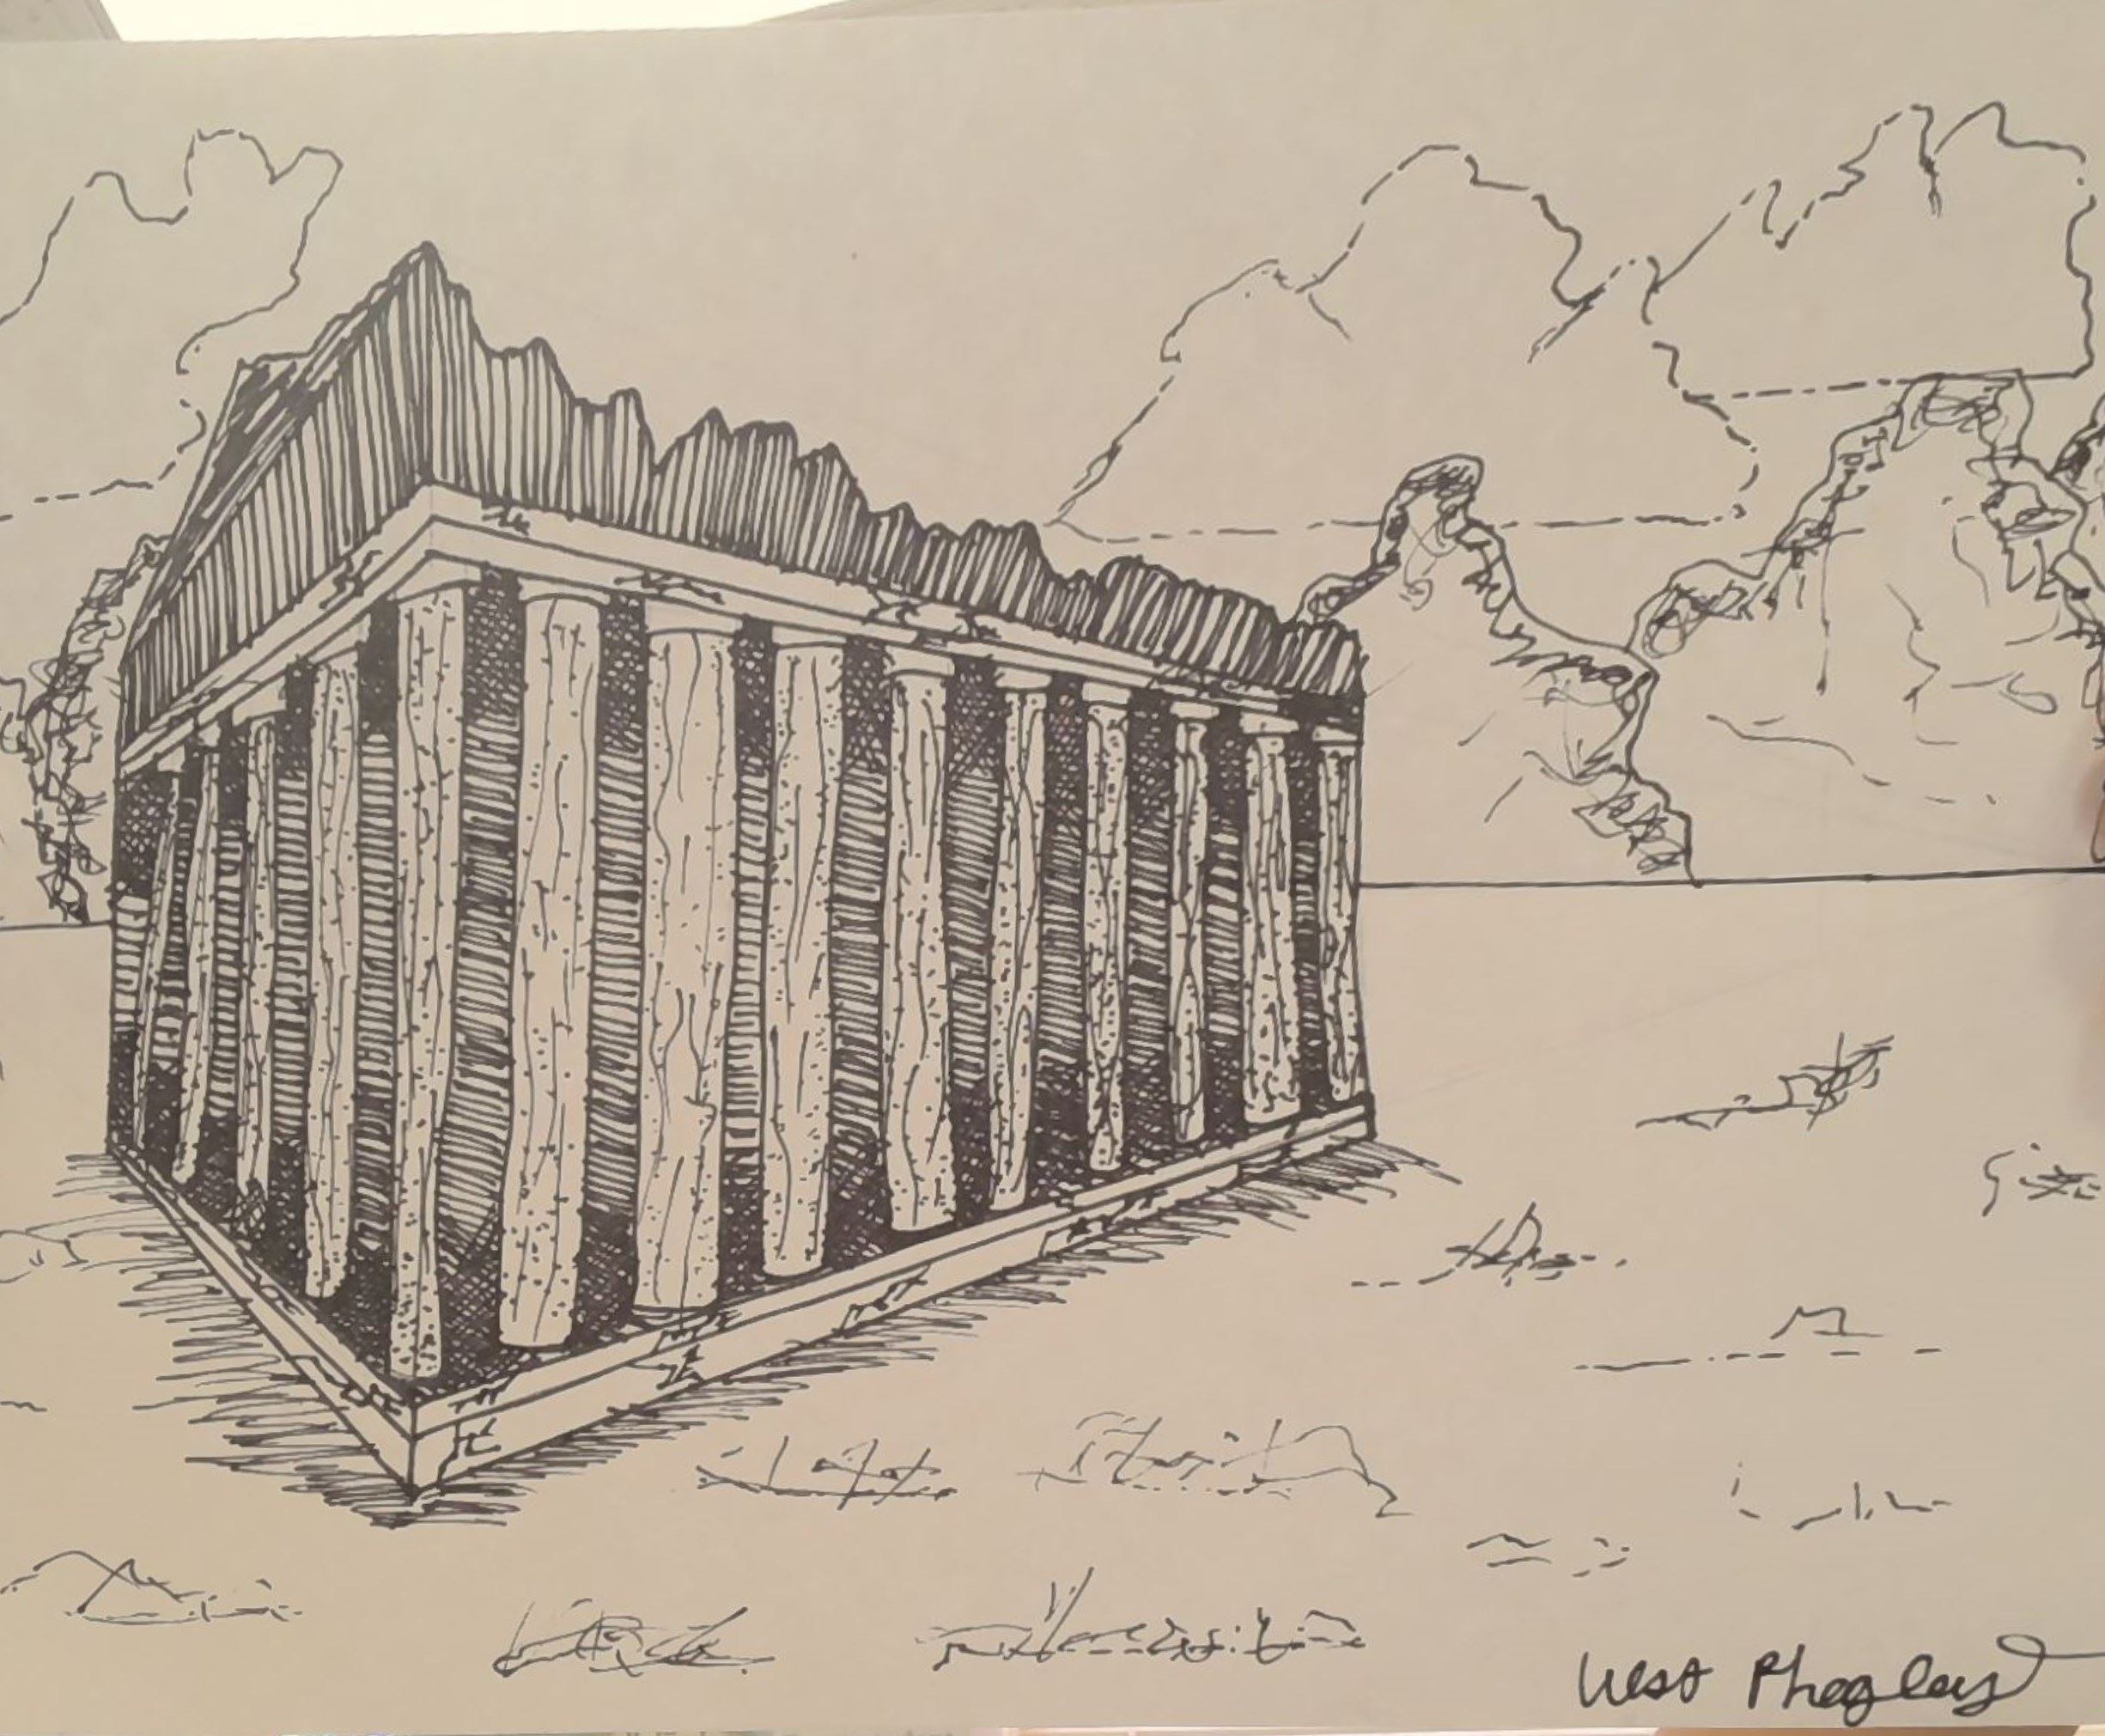 West Phegley